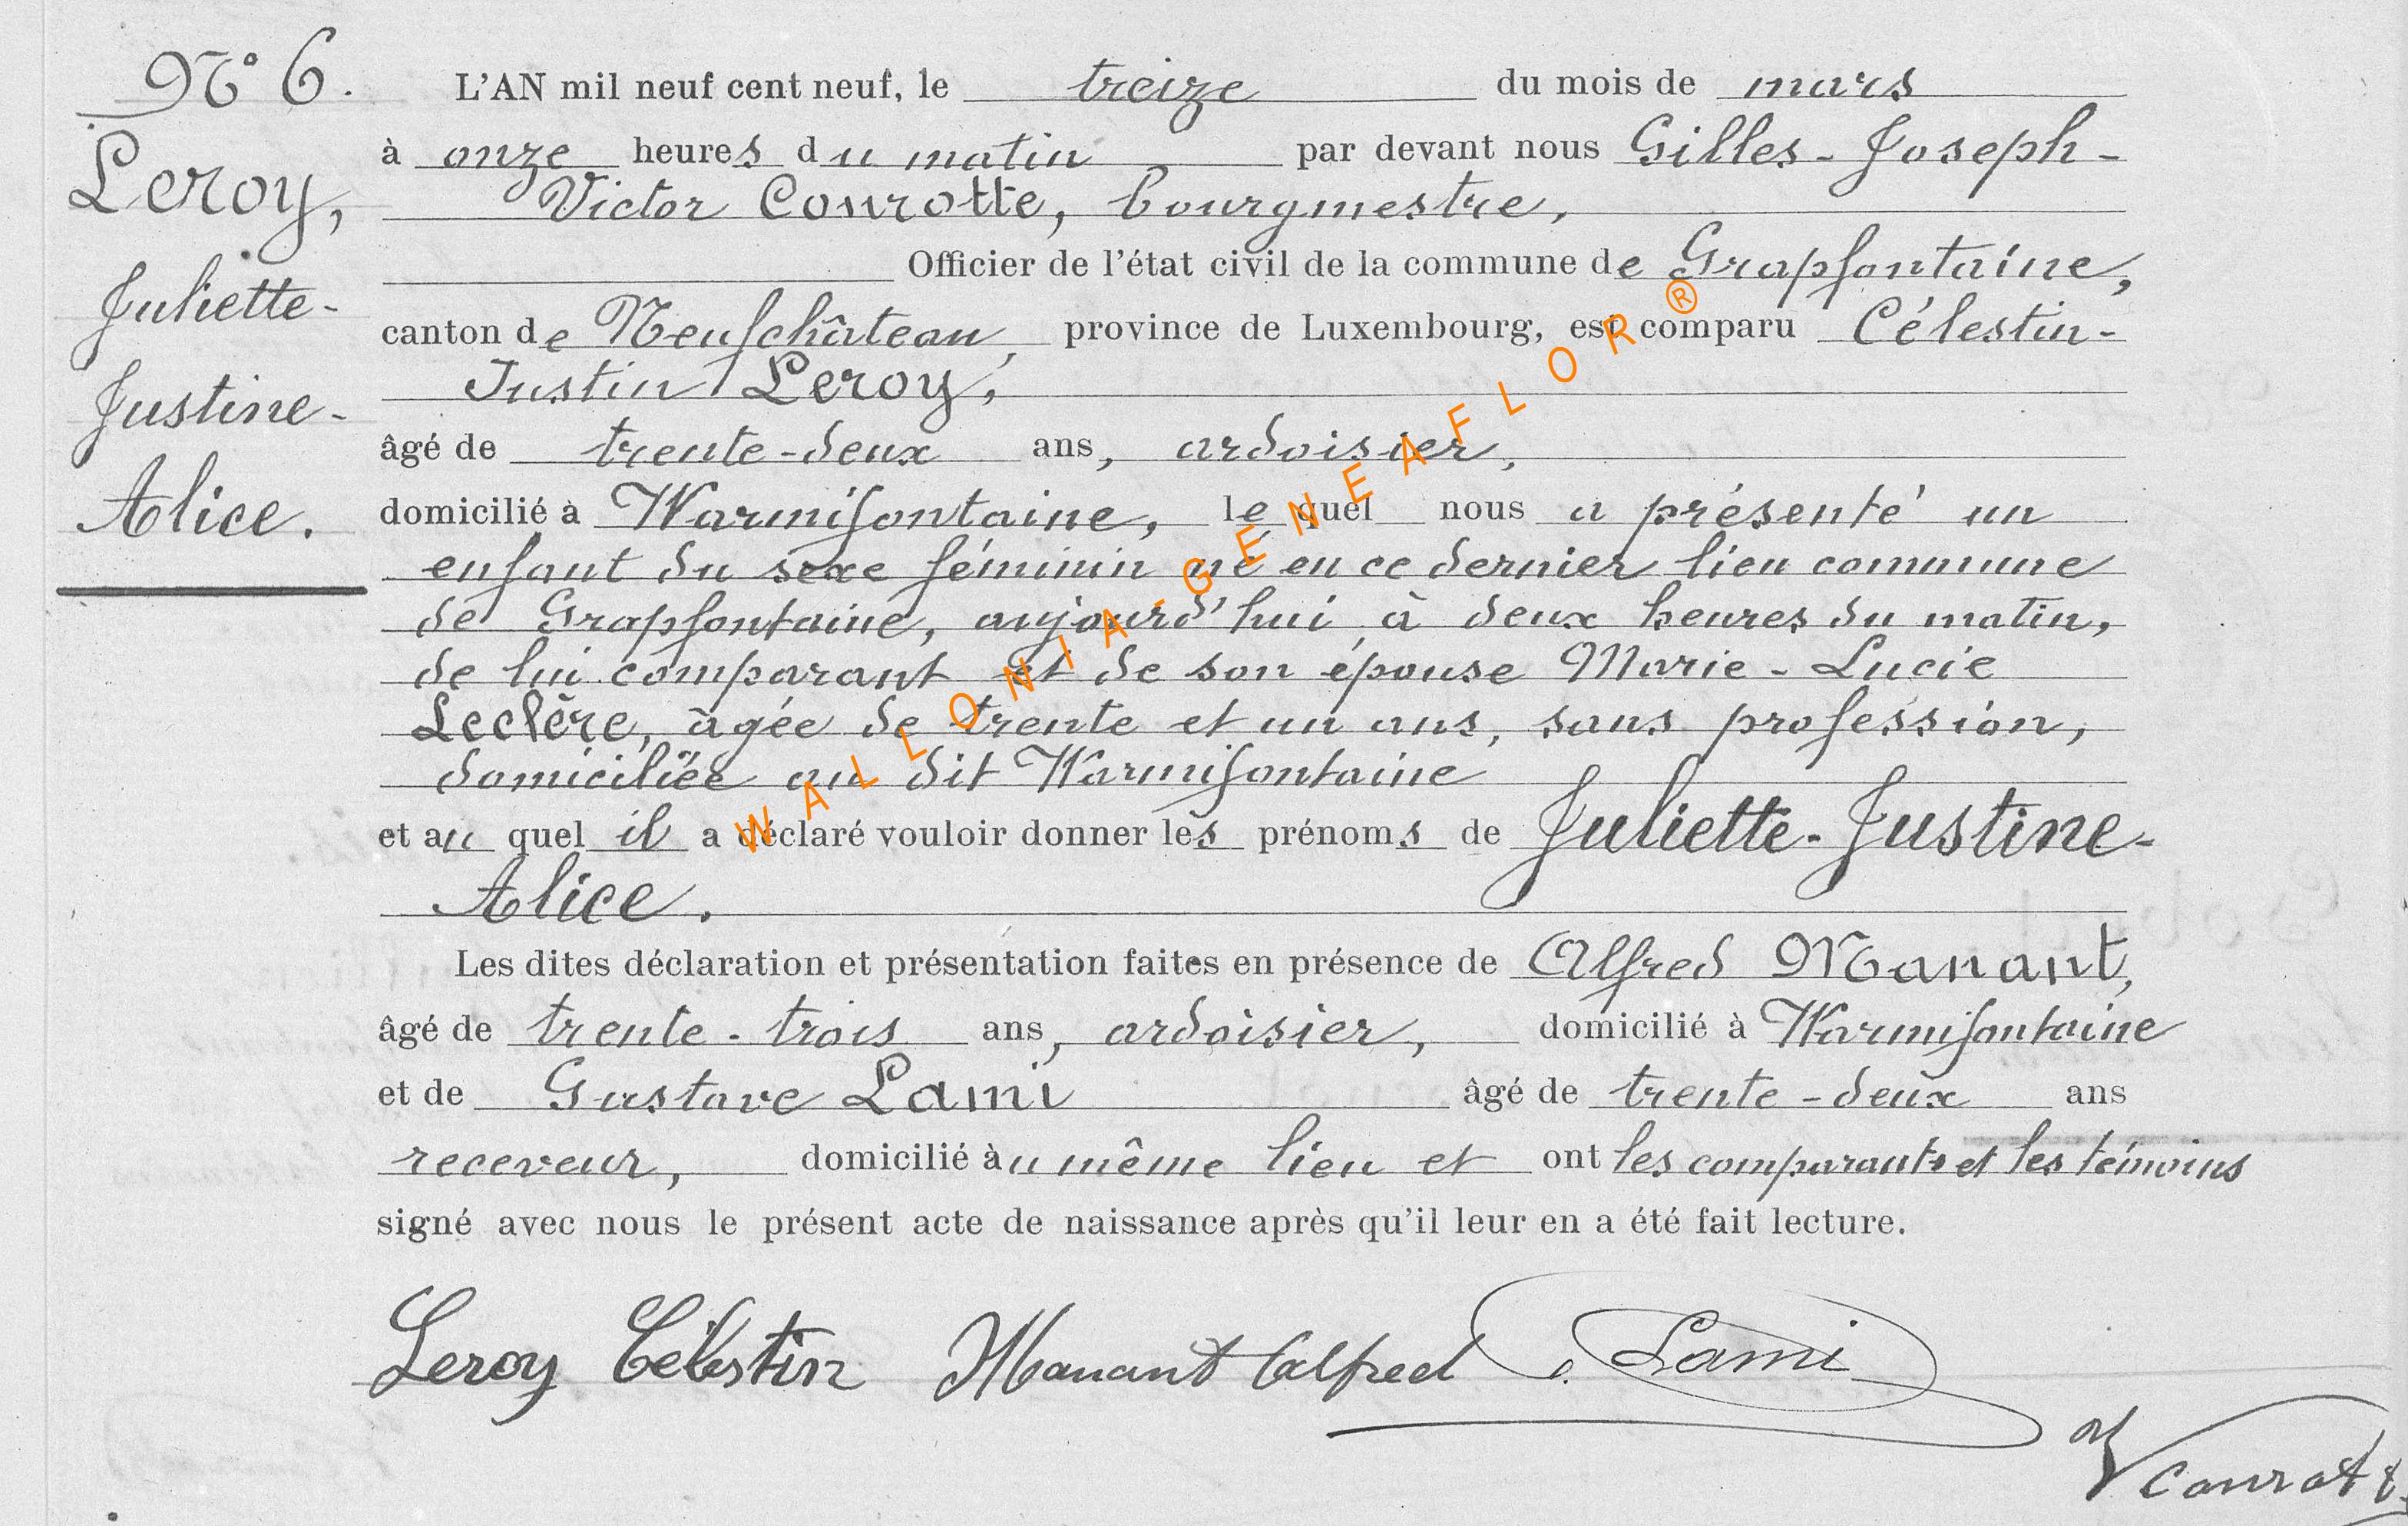 N° 6.
Leroy,
Juliette-
Justine-
Alice.
L'AN mil neuf cent neuf, le treize du mois de mars
à onze heures du matin par devant nous Gilles-Joseph-
Victor Conrotte, bourgmestre,
Officier de l'état civil de la commune de Grapfontaine,
canton de Neufchâteau, province de Luxembourg, est comparu Célestin-
Justin Leroy,
âgé de trente-deux ans, ardoisier,
domicilié à Warmifontaine, lequel nous a présenté un
enfant du sexe féminin né en ce dernier lieu commune
de Grapfontaine, aujourd'hui à deux heures du matin,
de lui comparant et de son épouse Marie-Lucie
Leclère, âgée de trente et un ans, sans profession,
domiciliée au dit Warmifontaine
et au quel il a déclaré vouloir donner les prénoms de Juliette-Justine-
Alice.
Les dites déclaration et présentation faites en présence de Alfred Manant,
âgé de trente-trois ans, ardoisier, domicilié à Warmifontaine
et de Gustave Lami âgé de trente-deux ans
receveur, domicilié au même lieu et ont les comparants et les témoins
signé avec nous le présent acte de naissance après qu'il leur en a été fait lecture.
Leroy Célestin Manant Alfred Lami
V Conrotte
WALLONIA-GENEAFLOR®